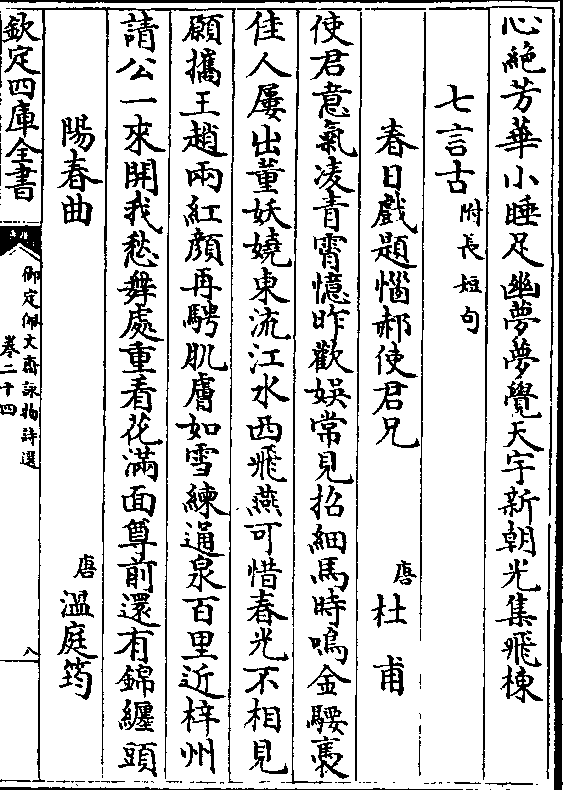 心絶芳華小睡足幽夢夢覺天宇新朝光集飛棟
七言古附長短句
春日戲題惱郝使君兄 唐 杜甫
使君意氣凌青霄憶昨歡娛常見招細馬時鳴金騕褭
佳人屢出董妖嬈東流江水西飛燕可惜春光不相見
願攜王趙兩紅顏再騁肌膚如雪練通泉百里近梓州
請公一來開我愁舞處重看花滿面尊前還有錦纏頭
陽春曲 唐 溫庭筠
欽定四庫全書
御定佩文齋詠物詩選
卷二十四
八